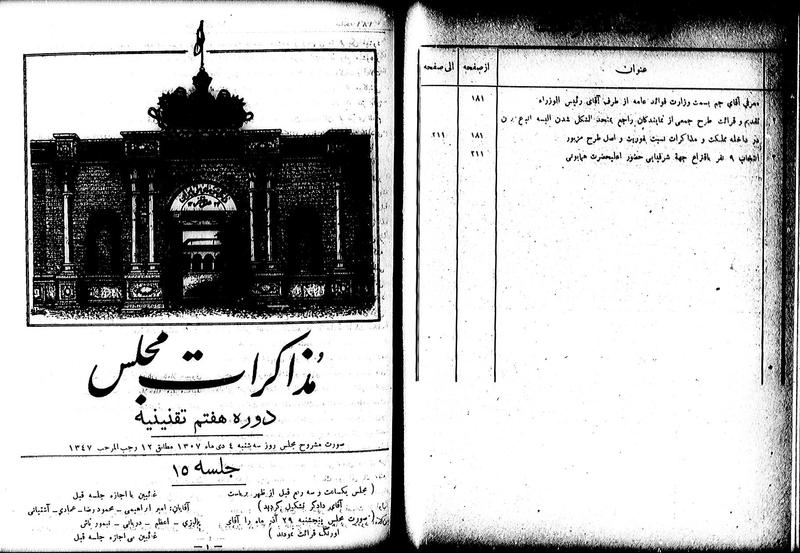 عنوان
از صفحه
الی صفحه
معرفی آقای جم بسمت وزارت فوائد عامه از طرف آقای رئیس الوزراء
۱۸۱
تقدیم و قرائت طرح جمعی از نمایندگان راجع بمتحد الشکل شدن البسه
در داخله مملکت و مذاکرات نسبت بفوریت و اصل طرح مزبور
۱۸۱
۲۱۱
انتخاب ۹ نفر باقتراع جهة شرفیابی حضور اعلیحضرت همایونی
۲۱۱
مذاکرات مجلس
دوره هفتم تقنینیه
صورت مشروح مجلس روز سه شنبه ۴ دی ماه ۱۳۰۷ مطابق ۱۲ رجب المرجب ۱۳۴۷
جلسه ۱۵
( مجلس یکساعت و سه ربع قبل از ظهر بریاست
آقای دادگر تشکیل گردید )
( صورت مجلس پنجشنبه ۲۹ آذر ماه را آقای
اورنگ قرائت نمودند )
غائبین با اجازه جلسه قبل
آقایان: امیر ابراهیمی - محمود رضا - عمادی - آشتیانی
پالیزی - اعظم - دربانی - تیمور تاش
غائبین بی اجازه جلسه قبل
— ۱ —